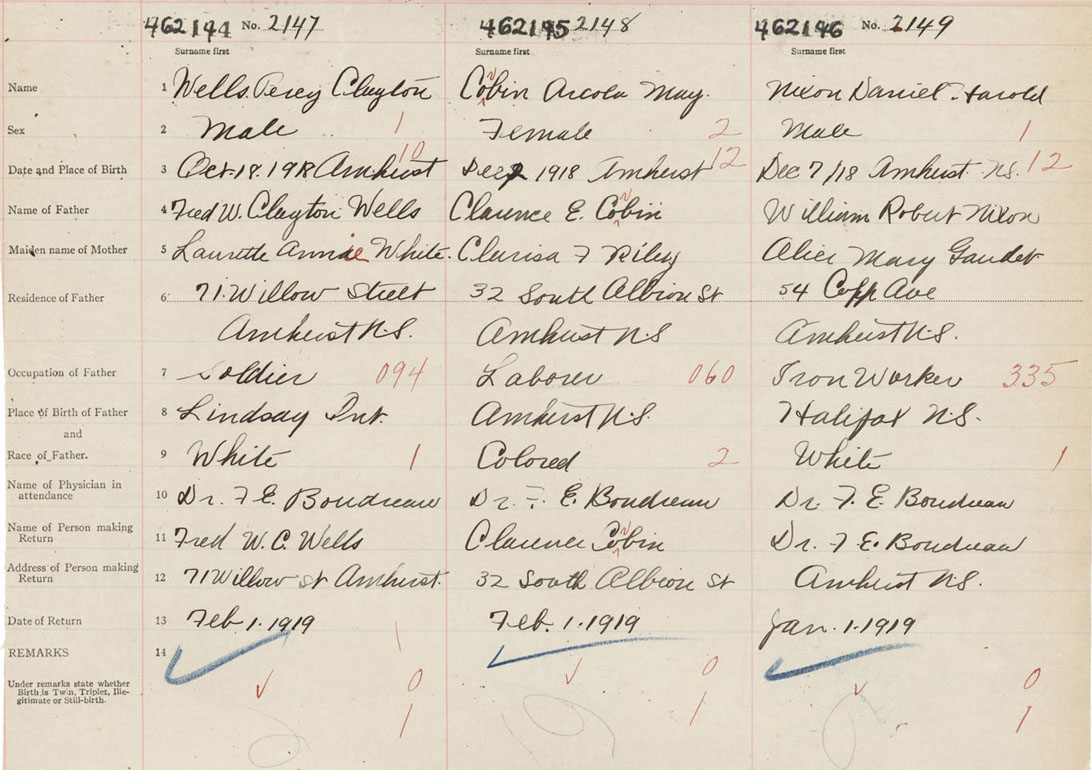 462144 No. 2147 462145 2148 462146 No. 2149
Surname first Surname first Surname first
Name 1 Wells Percy Clayton Cobin Arcola May. Nixon Daniel Harold
Sex 2 Male 1 Female 2 Male 1
Date and Place of Birth 3 Oct. 18. 1918 Amherst 10 Dec 2 1918 Amherst 12 Dec 7/18 Amherst N.S. 12
Name of Father 4 Fred W. Clayton Wells Clarence E. Cobin William Robert Nixon
Maiden name of Mother 5 Laurette Annie White. Clarisa F Riley Alice Mary Gaudet
Residence of Father 6 71 Willow Street 32 South Albion St 54 Copp Ave
Amherst N.S. Amherst N.S. Amherst N.S.
Occupation of Father 7 Soldier 094 Laborer 060 Iron Worker 335
Place of Birth of Father 8 Lindsay Ont. Amherst N.S. Halifax N.S.
and
Race of Father. 9 White 1 Colored 2 White 1
Name of Physician in
attendance 10 Dr. F. E. Boudreau Dr. F. E. Boudreau Dr. F. E. Boudreau
Name of Person making
Return 11 Fred W. C. Wells Clarence Cobin Dr. F. E. Boudreau
Address of Person making
Return 12 71 Willow St Amherst. 32 South Albion St Amherst N.S.
Date of Return 13 Feb. 1. 1919 Feb. 1. 1919 Jan. 1. 1919
REMARKS 14 1
Under remarks state whether
Birth is Twin, Triplet, Ille-
gitimate or Still-birth.
0 0 0
1 1 1